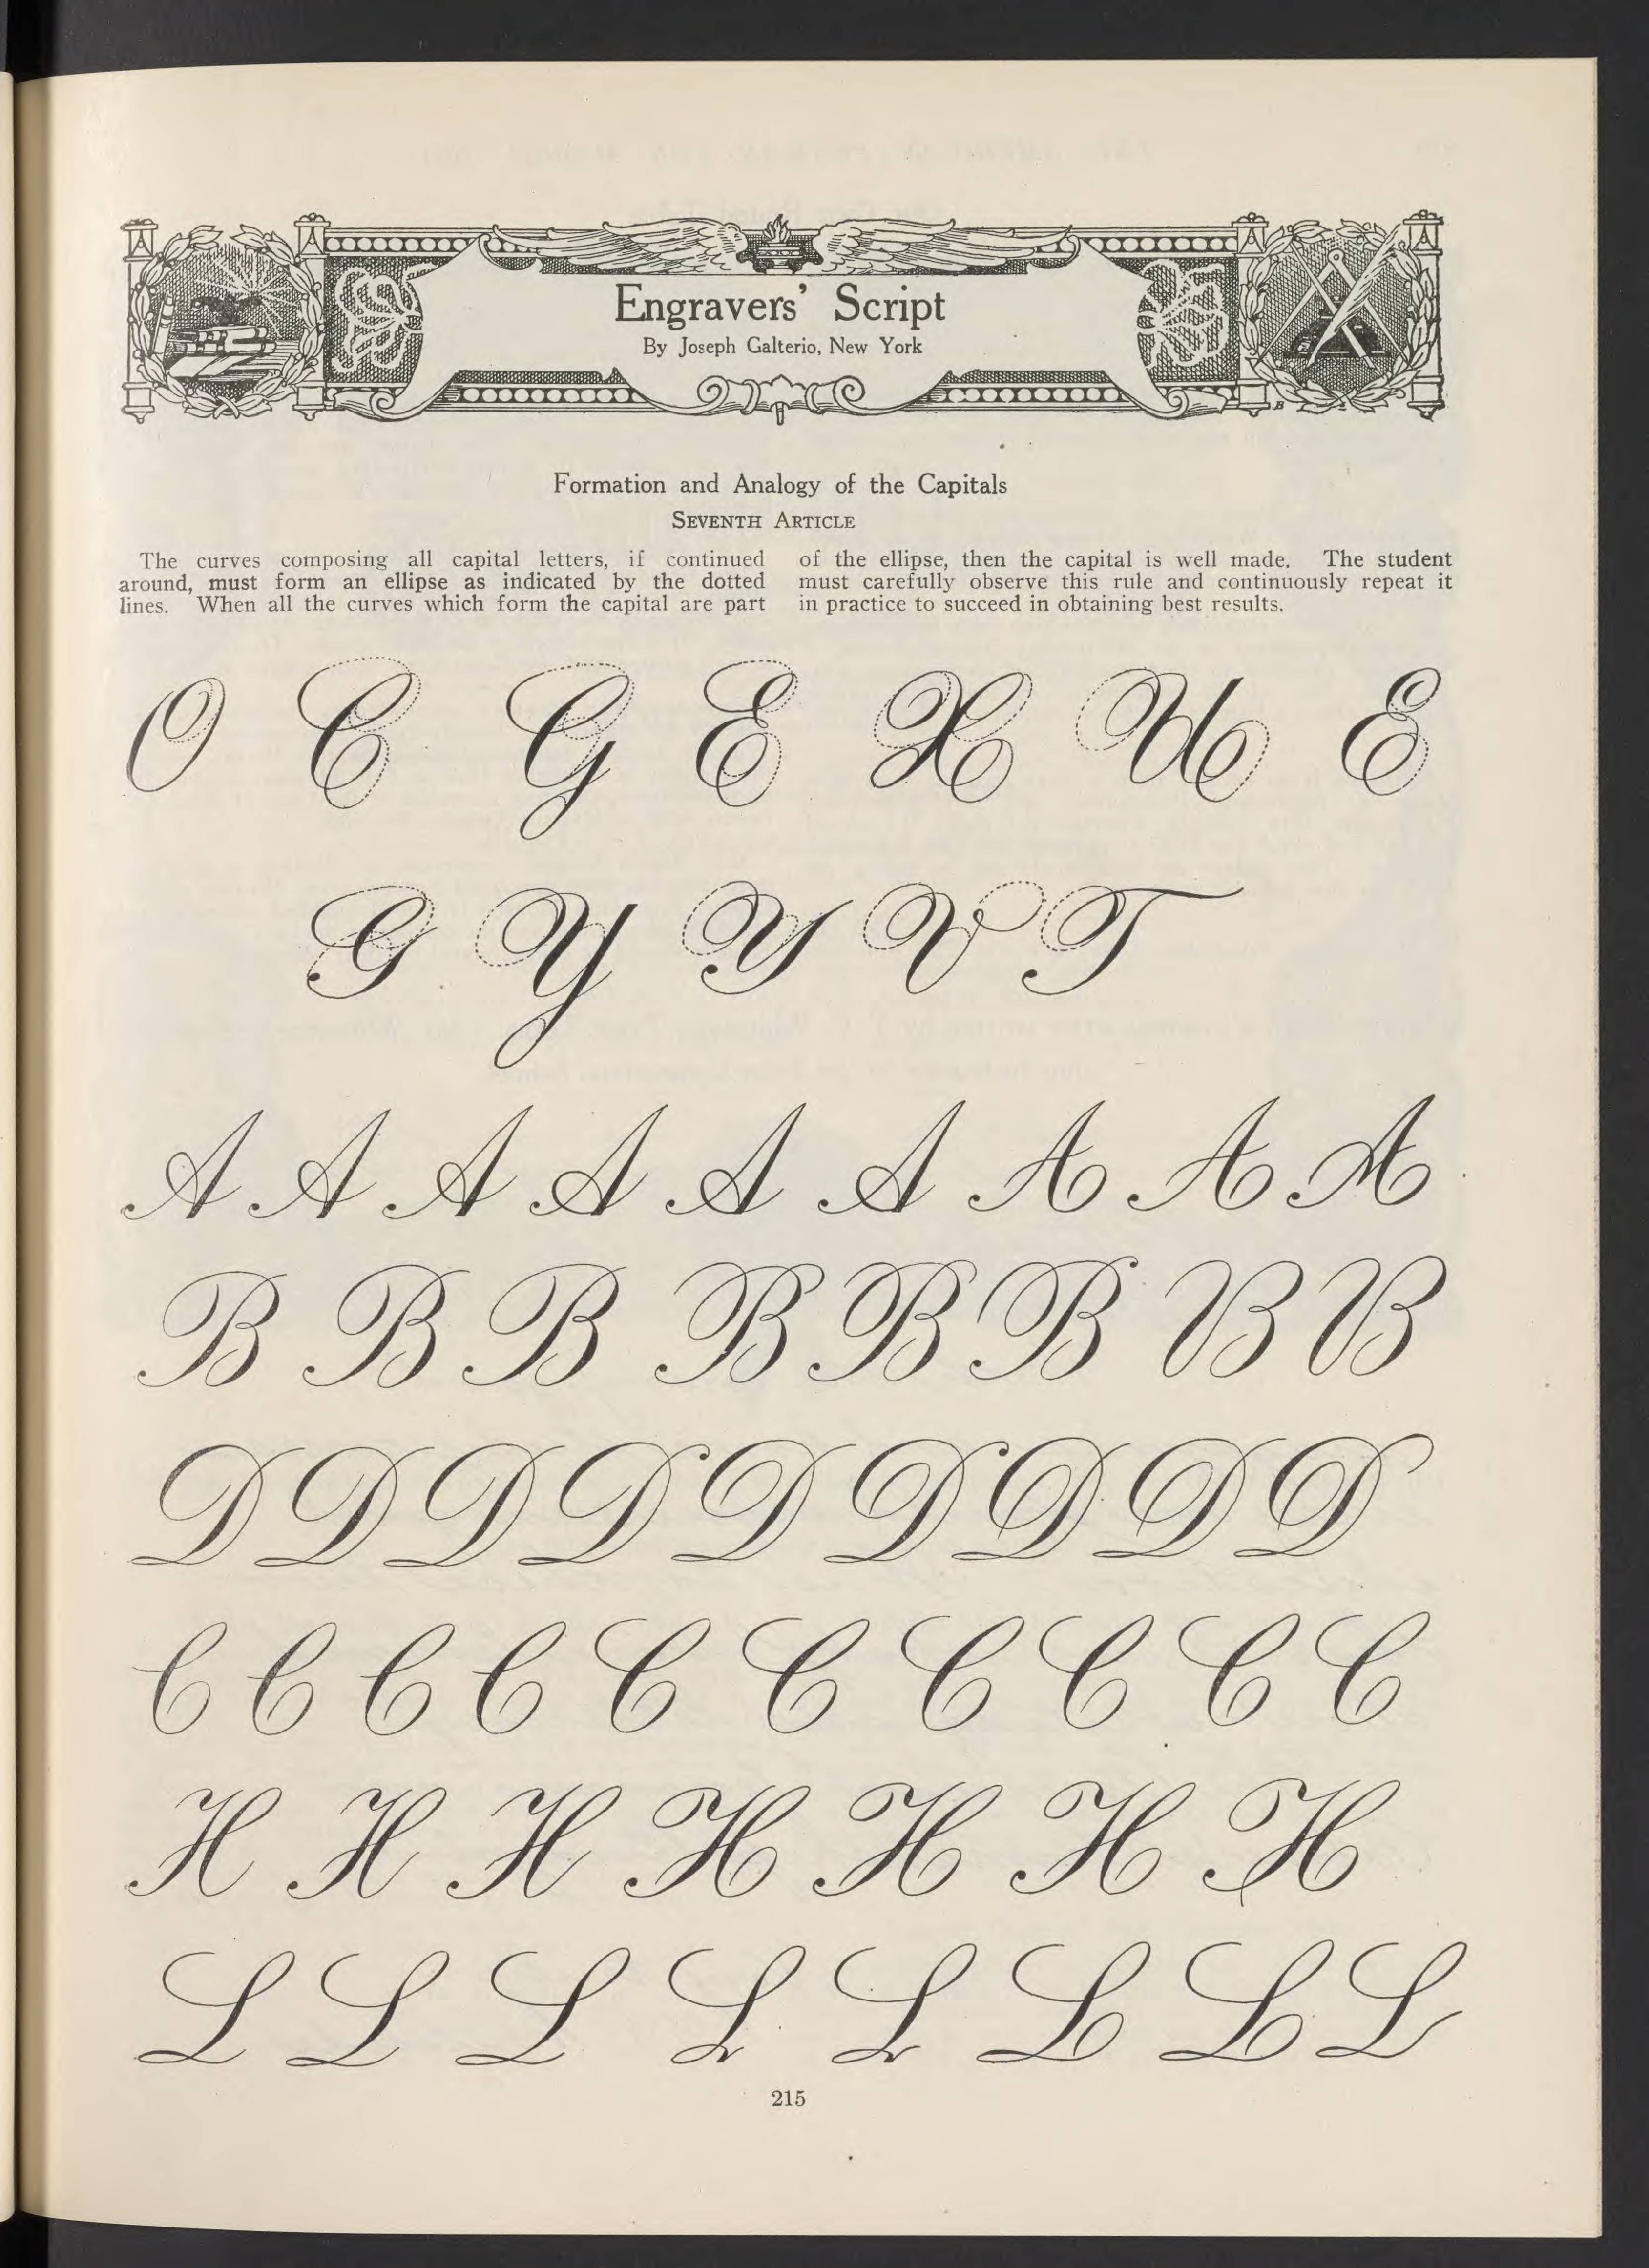 Engravers' Script
By Joseph Galterio, New York
Formation and Analogy of the Capitals
SEVENTH ARTICLE
The curves composing all capital letters, if continued
around, must form an ellipse as indicated by the dotted
lines. When all the curves which form the capital are part
of the ellipse, then the capital is well made. The student
must carefully observe this rule and continuously repeat it
in practice to succeed in obtaining best results.
O C G E X U E
G Y Y V T
A A A A A A A A A
B B B B B B B B
D D D D D D D D D
C C C C C C C C C C
H H H H H H H
L L L L L L L L
215